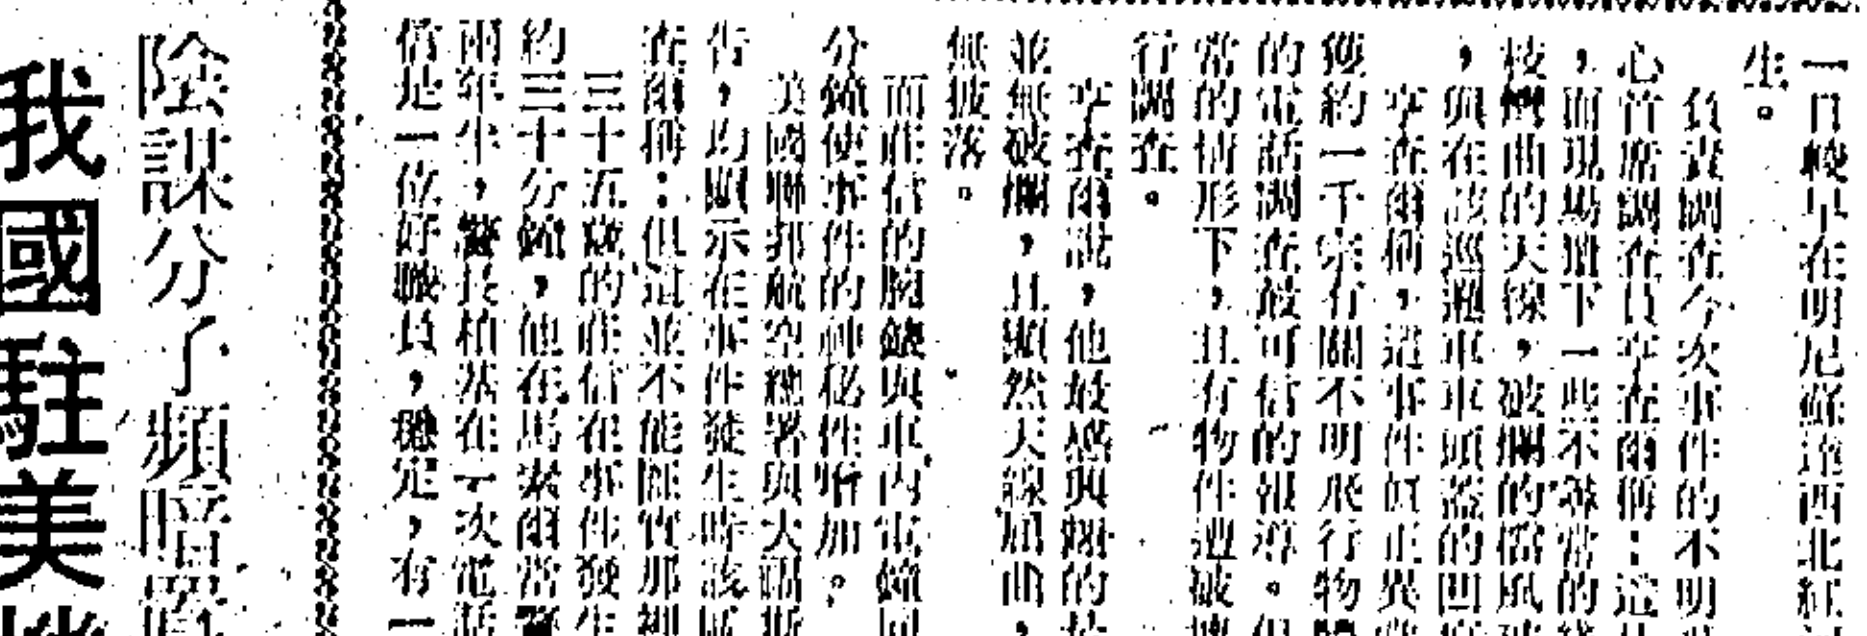 一日較早在明尼蘇達西北紅河
生。
負責調查今次事件的不明
心首席調查員亨查爾稱：這
，而現場留下一些不尋常的
枝彎曲的天線，破爛的擋風玻
，與在該巡邏車車頭蓋的凹
亨查爾稱，這事件眞正異
獲約一千宗有關不明飛行物
的電話調查最可信的報導。但
常的情形下，且有物件遭破
行調查。
亨查爾說，他最感興趣的
並無破爛，且顯然天線屈曲，
無披落。
而莊信的腕錶與車內電鐘同
分鐘使事件的神秘性增加。
美國聯邦航空總署與大福斯
告，均顯示在事件發生時該區
查爾稱：但這並不能證實那裡
三十五歲的莊信在事件發生
約三十分鐘，他在馬素爾當警
兩年半，警長柏基在一次電話
信是一位好職員，穩定，有一
陰謀分子頻暗
我國駐美